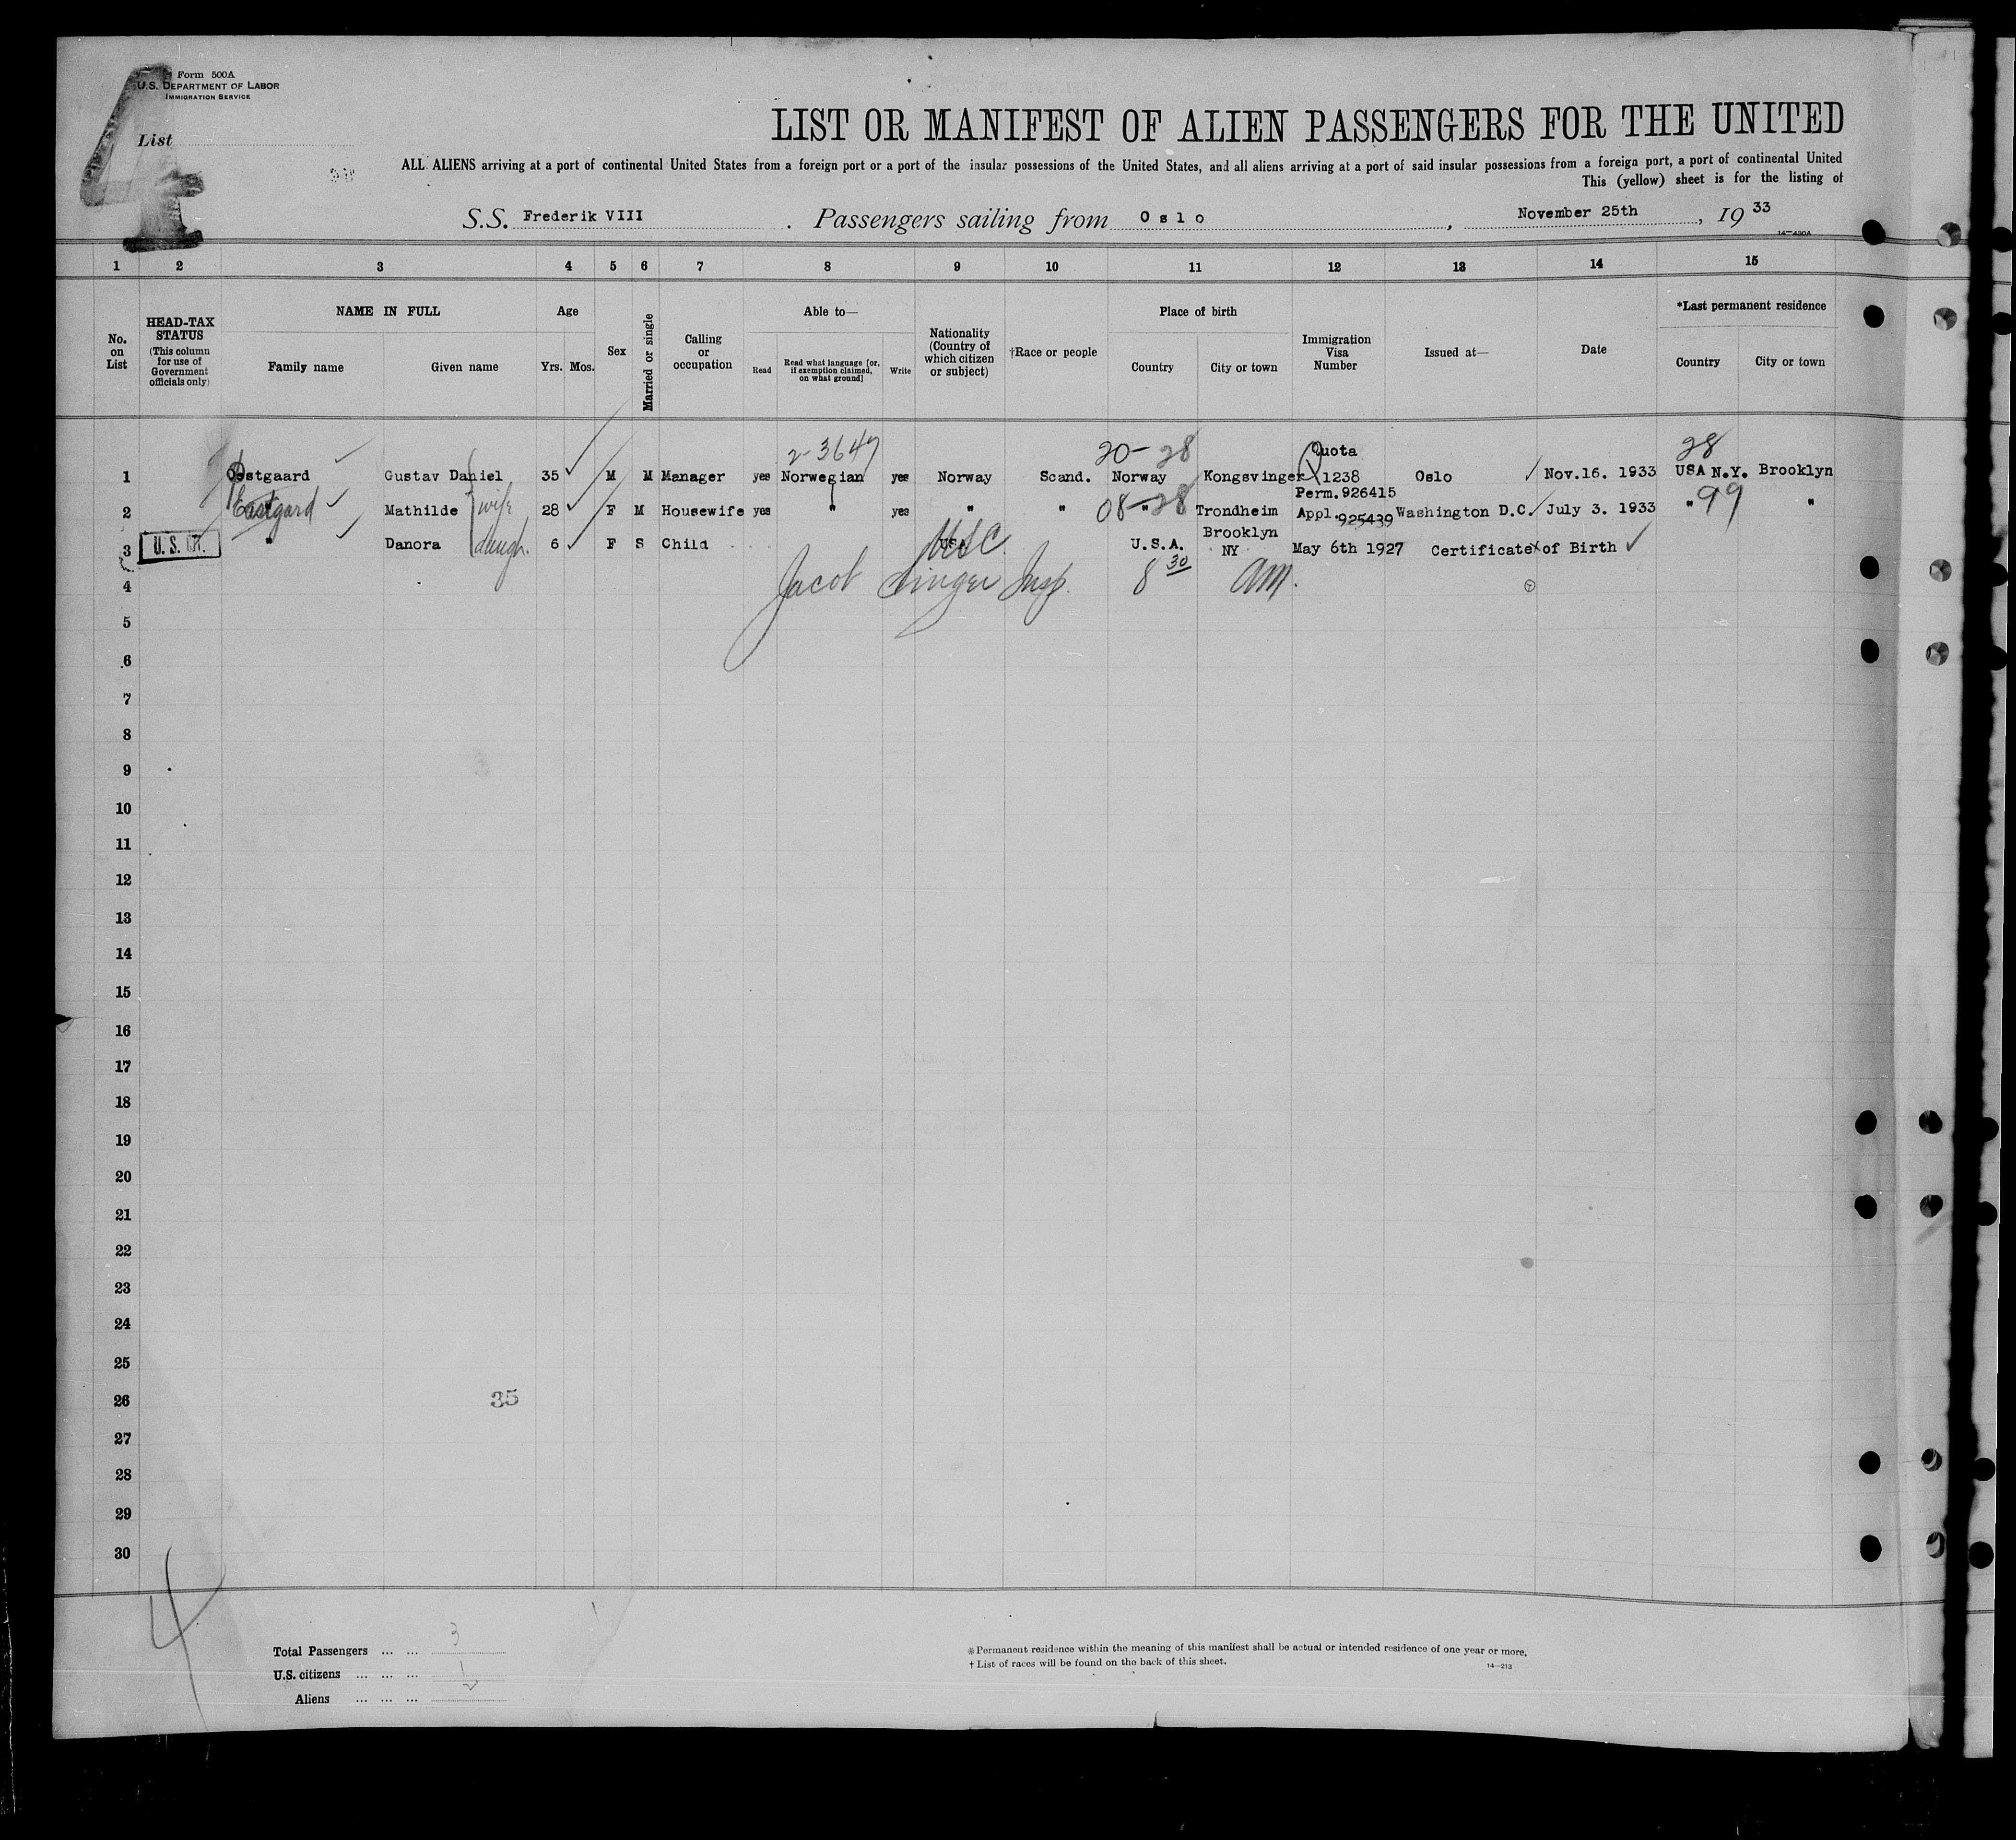 4
Form 500A
U.S. DEPARTMENT OF LABOR
IMMIGRATION SERVICE
List
LIST OR MANIFEST OF ALIEN PASSENGERS FOR THE UNITED
ALL ALIENS arriving at a port of continental United States from a foreign port or a port of the insular possessions of the United States, and all aliens arriving at a port of said insular possessions from a foreign port, a port of continental United
This (yellow) sheet is for the listing of
S.S. Frederik VIII . Passengers sailing from Oslo , November 25th , 19 33
14—430A
1 2 3 4 5 6 7 8 9 10 11 12 13 14 15
No. on List
HEAD-TAX STATUS (This column for use of Government officials only)
NAME IN FULL Family name Given name
Age Yrs. Mos.
Sex
Married or single
Calling or occupation
Able to— Read Read what language [or, if exemption claimed, on what ground] Write
Nationality (Country of which citizen or subject)
†Race or people
Place of birth Country City or town
Immigration Visa Number
Issued at—
Date
*Last permanent residence Country City or town
2-3647 20-28 Quota 28
1 Ostgaard Gustav Daniel 35 M M Manager yes Norwegian yes Norway Scand. Norway Kongsvinger 1238 Oslo Nov.16. 1933 USA N.Y. Brooklyn
Perm.926415
2 Eastgard Mathilde wife 28 F M Housewife yes " yes " " 08-28 " Trondheim Appl.925439 Washington D.C. July 3. 1933 " 99 "
3 U. S. CIT. " Danora daugh. 6 F S Child USA USC U.S.A. Brooklyn NY May 6th 1927 Certificate of Birth
4 Jacob Singer Insp. 8 30 am.
5
6
7
8
9
10
11
12
13
14
15
16
17
18
19
20
21
22
23
24
25
26
35
27
28
29
30
4
Total Passengers ... ... 3
U.S. citizens ... ... ... 1
Aliens ... ... ... 2
*Permanent residence within the meaning of this manifest shall be actual or intended residence of one year or more.
†List of races will be found on the back of this sheet.
14—213